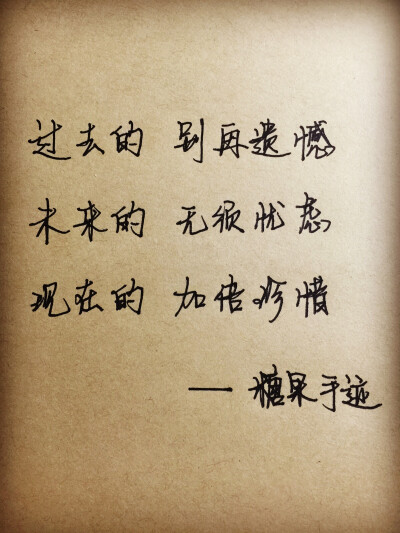 过去的 别再遗憾
未来的 无须忧虑
现在的 加倍珍惜
— 糖果手迹